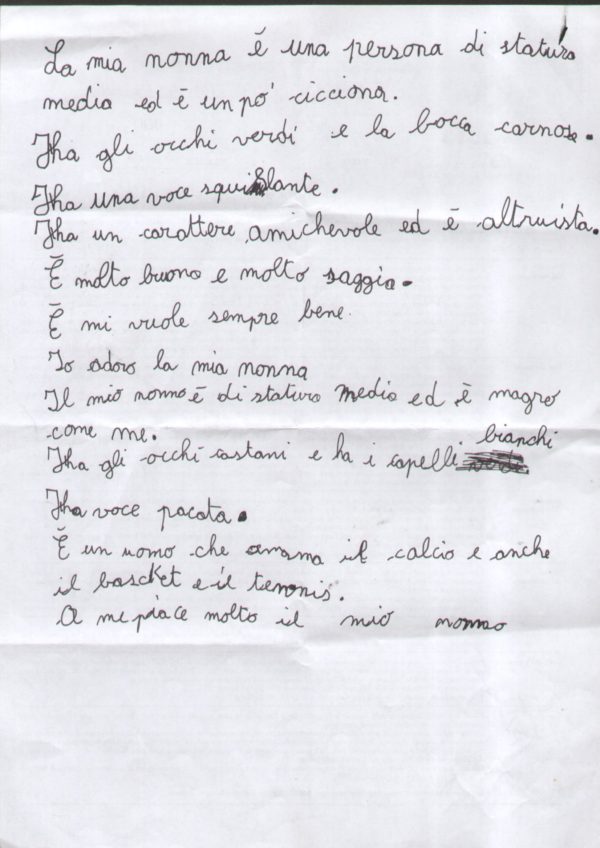 La mia nonna è una persona di statura
media ed è un pò cicciona.
Ha gli occhi verdi e la bocca carnosa.
Ha una voce squillante.
Ha un carattere amichevole ed è altruista.
È molto buona e molto saggia.
È mi vuole sempre bene.
Io adoro la mia nonna
Il mio nonno è di statura media ed è magro
come me.
Ha gli occhi castani e ha i capelli bianchi
Ha voce pacata.
È un uomo che amama il calcio e anche
il bascket e il tennis.
A me piace molto il mio nonno